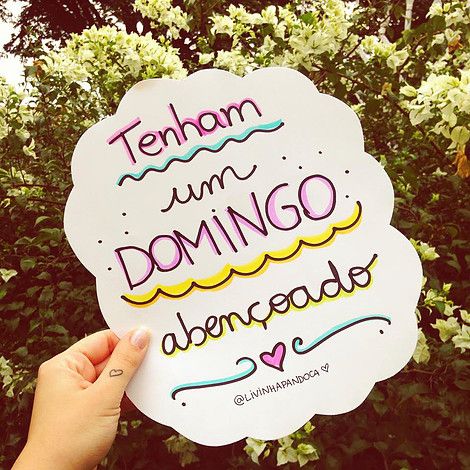 Tenham
um
DOMINGO
abençoado
@LIVINHAPANDOCA